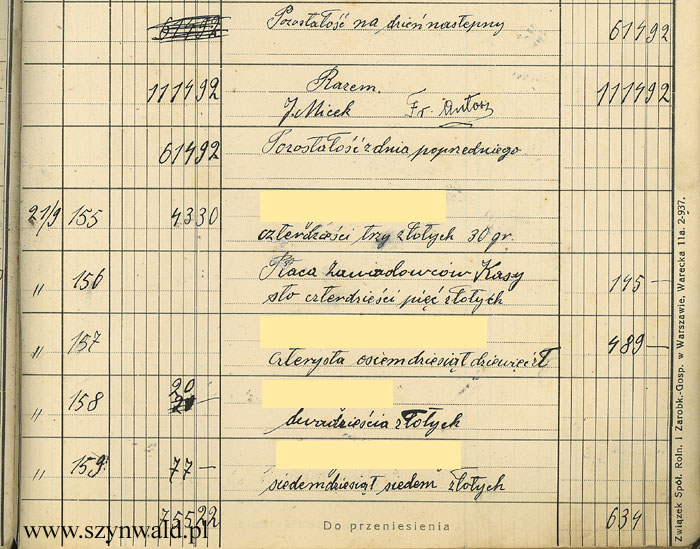 61492 Pozostałość na dzień następny 61492
111492 Razem. 111492
J. Micek Fr. Antosz
61492 Pozostałość z dnia poprzedniego
21/9 155 4330
czterdzieści trzy złotych 30 gr.
" 156 Płaca Zawiadowców Kasy
sto czterdzieści pięć złotych 145 —
" 157 489 —
czterysta osiemdziesiąt dziewięć zł
20
" 158 —
dwadzieścia złotych
" 159 77 —
siedemdziesiąt siedem złotych
75522 Do przeniesienia 634
www.szynwald.pl
Związek Spół. Roln. i Zarobk.-Gosp. w Warszawie, Warecka 11a. 2-937.